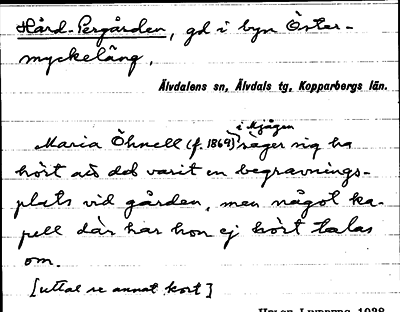 Hård-Pergården, gd i byn Öster-
myckelång,
Älvdalens sn, Älvdals tg, Kopparbergs län.
i Mjågen
Maria Öhnell (f. 1869) säger sig ha
hört att det varit en begravnings-
plats vid gården, men något ka-
pell där har hon ej hört talas
om.
[uttal se annat kort]